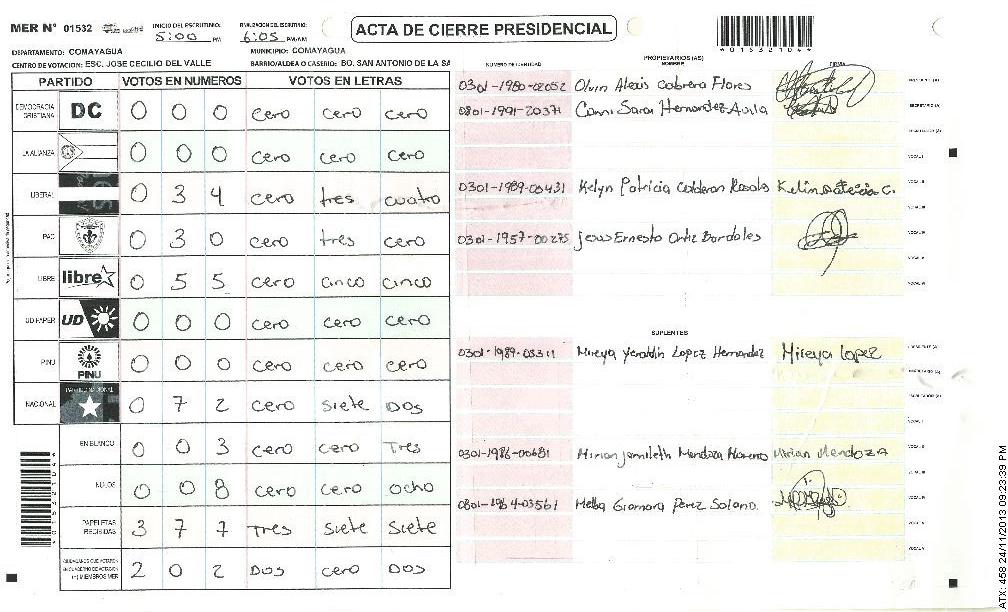 MER Nº 01532
INICIO DEL ESCRUTINIO: 5:00 PM
FINALIZACION DEL ESCRUTINIO: 6:05 PM/AM
ACTA DE CIERRE PRESIDENCIAL
01532104
DEPARTAMENTO: COMAYAGUA
MUNICIPIO: COMAYAGUA
CENTRO DE VOTACION: ESC. JOSE CECILIO DEL VALLE
BARRIO/ALDEA O CASERIO: BO. SAN ANTONIO DE LA SA
PARTIDO VOTOS EN NUMEROS VOTOS EN LETRAS
DEMOCRACIA CRISTIANA DC 0 0 0 cero cero cero
LA ALIANZA 0 0 0 cero cero cero
LIBERAL 0 3 4 cero tres cuatro
PAC 0 3 0 cero tres cero
LIBRE libre 0 5 5 cero cinco cinco
UD FAPER UD 0 0 0 cero cero cero
PINU PINU 0 0 0 cero cero cero
NACIONAL PARTIDO NACIONAL 0 7 2 cero siete Dos
EN BLANCO 0 0 3 cero cero Tres
NULOS 0 0 8 cero cero ocho
PAPELETAS RECIBIDAS 3 7 7 Tres siete siete
CIUDADANOS QUE VOTARON EN CUADERNO DE VOTACION (+) MIEMBROS MER 2 0 2 Dos cero Dos
PROPIETARIOS (AS)
NUMERO DE IDENTIDAD NOMBRE FIRMA
0301-1980-02052 Olvin Alexis Cabrera Flores PRESIDENTE (A)
0801-1991-20371 Cami Sarai Hernandez Avila SECRETARIO (A)
0301-1989-00431 Kelyn Patricia Calderon Rosales
0301-1957-00275 Jesus Ernesto Ortiz Bordales
SUPLENTES
0301-1989-03311 Mireya Yeraldin Lopez Hernandez Mireya Lopez
0301-1986-00681 Mirian Jamileth Mendoza Moreno Mirian Mendoza
0801-1964-03561 Melba Giomara Perez Solano.
01532104
ATX: 458 24/11/2013 09:23:39 PM